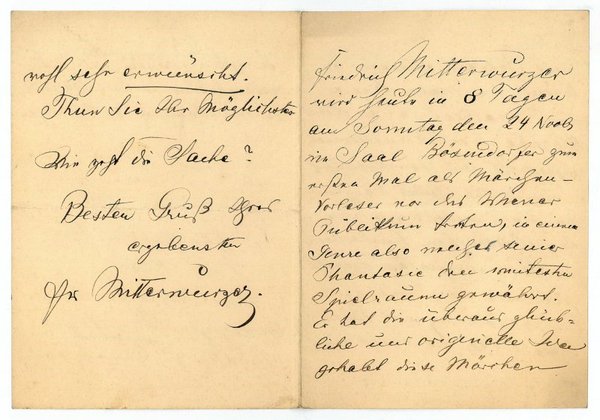 wohl sehr erwünscht.
Thun Sie Ihr Möglichstes
Wie geht die Sache?
Besten Gruß Ihres
ergebensten
Fr Mitterwurzer.
Friedrich Mitterwurzer
wird heute in 8 Tagen
am Sonntag den 24 Novb
im Saal Bösendorfer zum
ersten Mal als Märchen-
vorleser vor das Wiener
Publikum treten, in einem
Genre also welches seiner
Phantasie den weitesten
Spielraum gewährt.
Er hat die überaus glück-
liche und originelle Idee
gehabt diese Märchen